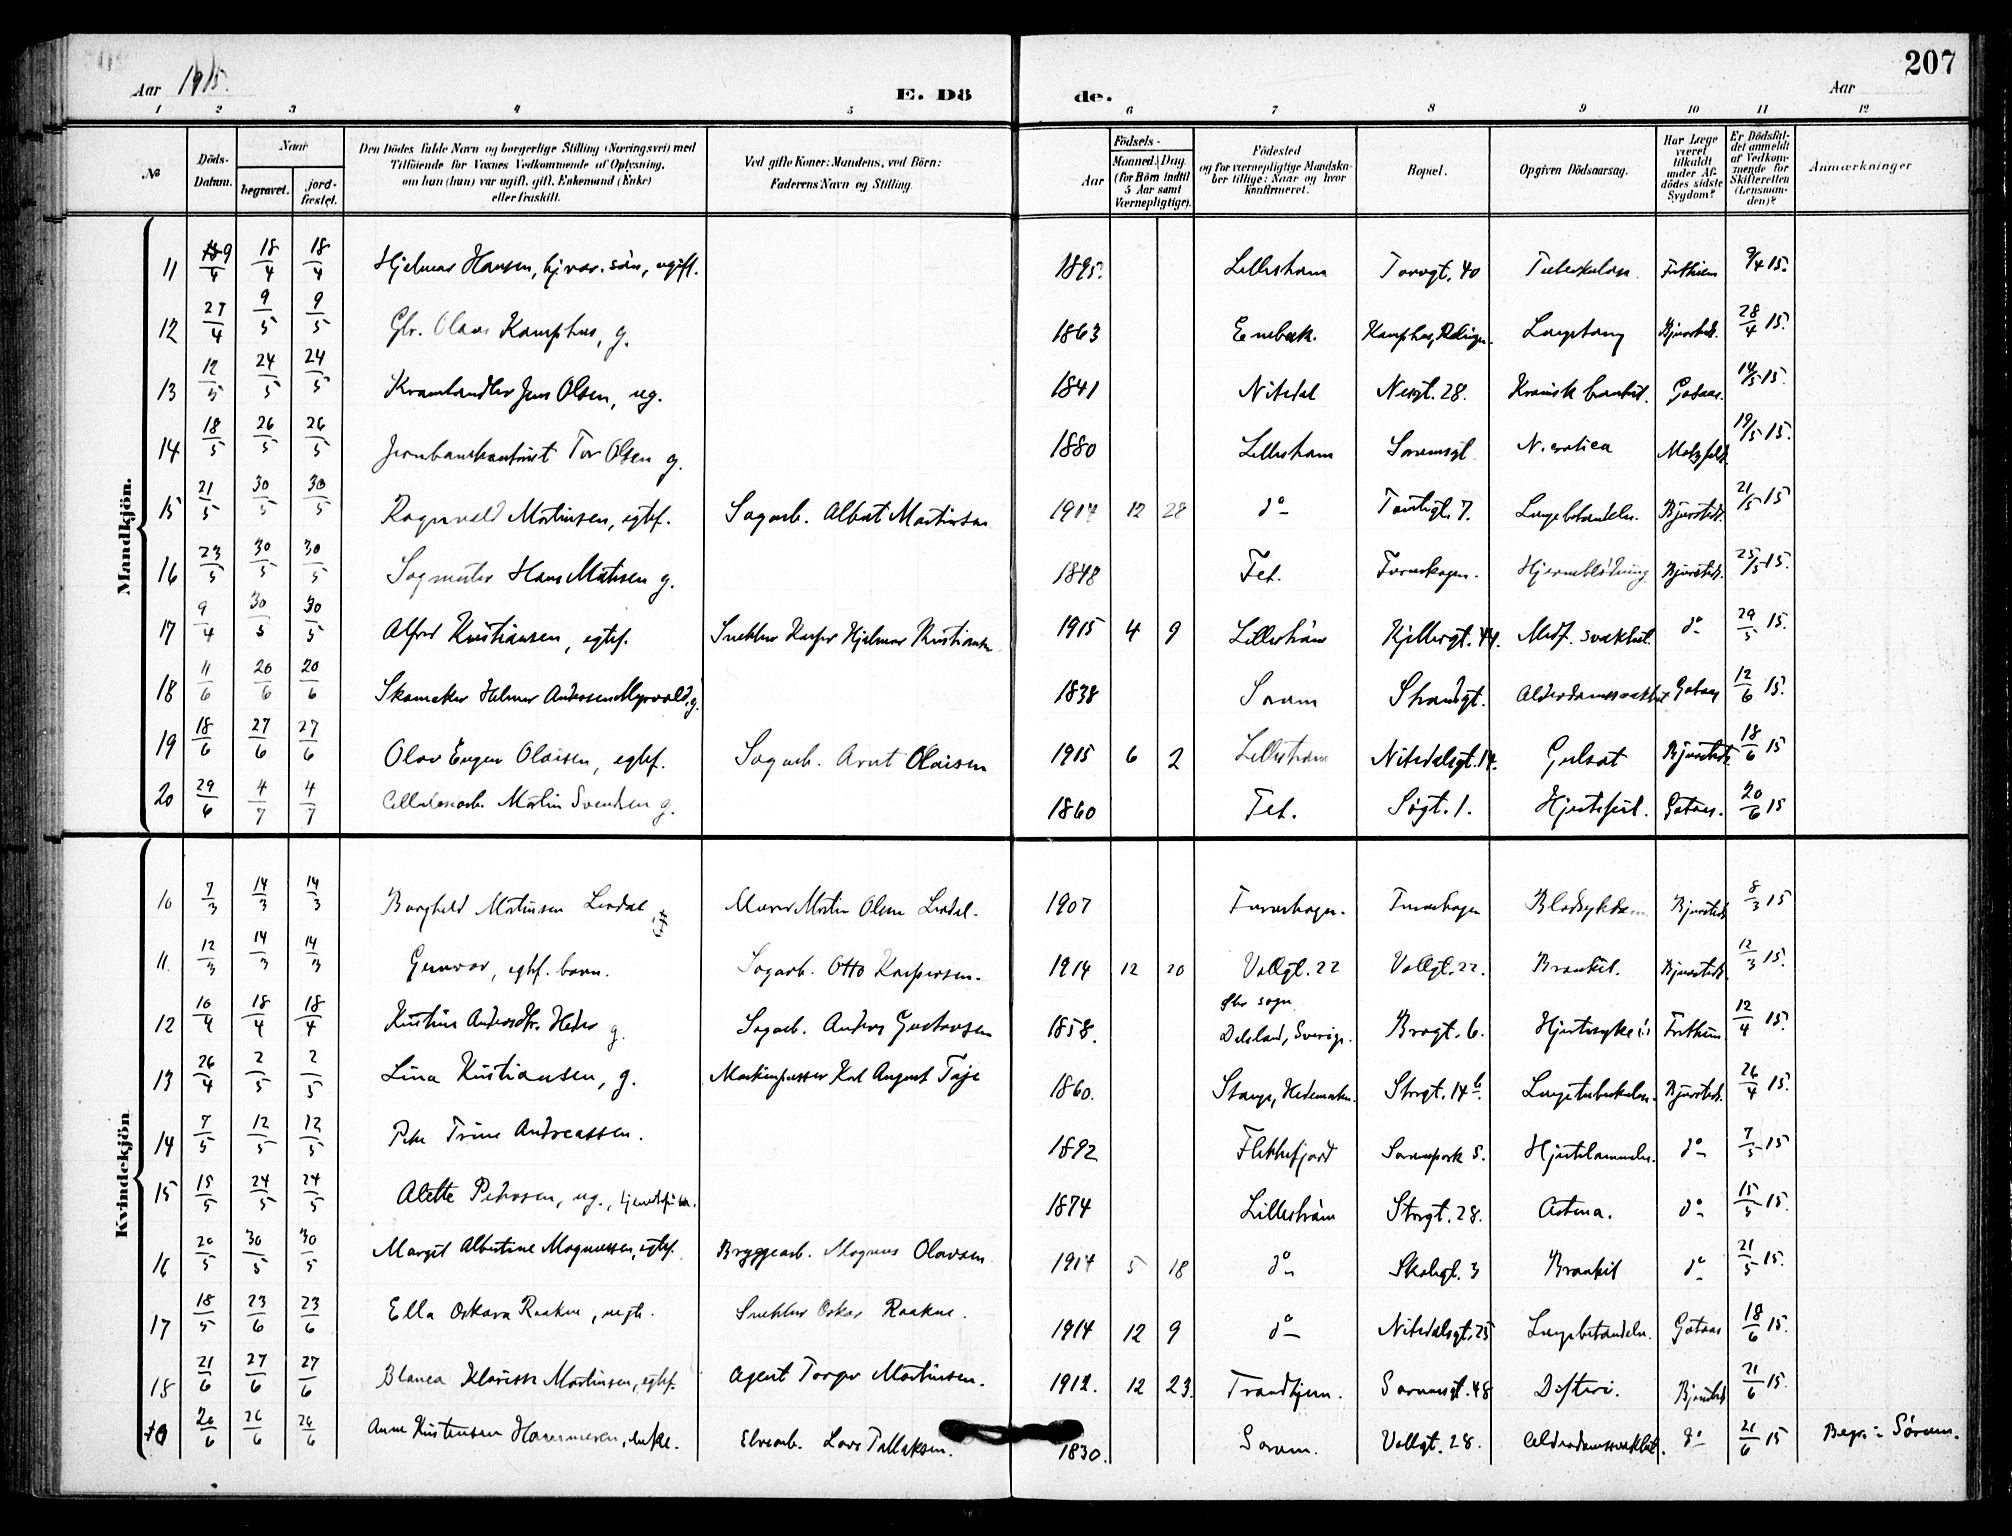 207
Aar 1915.
E. Döde.
Aar
1 2 3 4 5 6 7 8 9 10 11 12
No
Döds-Datum.
Naar
begravet.
jord-fæstet.
Den Dödes fulde Navn og borgerlige Stilling (Næringsvei) med
Tilföiende for Voxnes Vedkommende af Oplysning,
om han (hun) var ugift, gift, Enkemand (Enke)
eller fraskilt.
Ved gifte Koner: Mandens, ved Börn:
Faderens Navn og Stilling.
Födsels-
Aar
Maaned. Dag.
(for Börn indtil
5 Aar samt
Værnepligtige).
Födested
og for værnepligtige Mandska-
ber tillige: Naar og hvor
konfirmeret.
Bopæl.
Opgiven Dödsaarsag.
Har Læge
været
tilkaldt
under Af-
dödes sidste
Sygdom?
Er Dödsfal-
det anmeldt
af Vedkom-
mende for
Skifteretten
(Lensman-
den)?
Anmærkninger
Mandkjön.
11 9/4 18/4 18/4 Hjelmar Hansen, sön, ugift. 1895. Lilleström Torvgt. 40 Tuberkulose Frithjem 9/4 15.
12 27/4 9/5 9/5 Olaus Kamphus, g. 1863 Enebak. Kamphus, Rælingen. Bjørstedt. 28/4 15.
13 12/5 24/5 24/5 Kramhandler Jens Olsen, ug. 1841 Nitedal Negt. 28. Kronisk bronkit. Gotaas. 14/5 15.
14 18/5 26/5 26/5 Tor Olsen g. 1880 Lilleström Sørumsgt. Motzfeldt 19/5 15.
15 21/5 30/5 30/5 Ragnvald Martinsen, egtef. Sagarb. Albert Martinsen 1914 12 28 do Tomtegt. 7. Lungebetændelse. Bjørstedt. 21/5 15
16 23/5 30/5 30/5 Sagmester Hans Mathisen g. 1848 Fet. Furuskogen. Hjerneblödning Bjørstedt. 25/5 15.
17 9/4 30/5 30/5 Alfred Kristiansen, egtef. Snekker Kasper Hjelmar Kristiansen 1915 4 9 Lilleström Kjellergt. 44. Medf. svakhet. do 29/5 15.
18 11/6 20/6 20/6 Skomaker Helmer Andersen Myrvold, g. 1838 Sørum Strandgt. Alderdomssvakhet Gotaas 12/6 15.
19 18/6 27/6 27/6 Olav Eugen Olaisen, egtef. Sagarb. Arnt Olaisen 1915 6 2 Lilleström Nitedalsgt. 14. Gulsot Bjørstedt. 18/6 15
20 29/6 4/7 4/7 Cellulosearb. Martin Svendsen g. 1860 Fet. Søgt. 1. Hjertefeil. Gotaas. 20/6 15
Kvindekjön
10 7/3 14/3 14/3 Borghild Martinsen Lerdal, Murer Martin Olsen Lerdal. 1907 Furuskogen. Furuskogen Blodsykdom Bjørstedt 8/3 15
11. 12/3 14/3 14/3 Gunvor, egtf. barn. Sagarb. Otto Kaspersen. 1914 12 20 Vollgt. 22 Vollgt. 22. Bronkit. Bjørstedt. 12/3 15.
12 10/4 18/4 18/4 Kristine Andersdtr. g. Sagarb. Anders Gustavsen 1858. sogn Dalsland, Sverige. Brogt. 6. Frithjem. 12/4 15.
13 26/4 2/5 2/5 Lina Kristiansen, g. Maskinpasser Karl August Taje 1860. Stange, Hedemarken. Storgt. 14b. Lungetuberkulose. Bjørstedt. 26/4 15.
14 7/5 12/5 12/5 Trine Andreassen. 1892 Flekkefjord Sørumpark 5. Hjertelammelse. do 7/5 15
15 15/5 24/5 24/5 Alette Petersen, ug., 1874 Lilleström Storgt. 28. Astma. do 15/5 15.
16 20/5 30/5 30/5 Margit Albertine Magnussen, egtef. Bryggearb. Magnus Olavsen 1914 5 18 do Skolegt. 3 Bronkit do 21/5 15.
17 18/5 23/6 23/6 Ella Oskara Raakne, Snekker Oskar Raakne. 1914 12 9 do Nitedalsgt. 25 Lungebetændelse. Gotaas 18/6 15.
18 21/6 27/6 27/6 Blanca Klarissa Martinsen, egtef. Agent Torger Martinsen. 1912. 12 23. Trondhjem. Sørumsgt. 48 Difteri. Bjørstedt 21/6 15.
20/6 26/6 26/6 Anne Kristensen enke. Elvearb. Lars Tollaksen. 1830. Sørum. Vollgt. 28. Alderdomssvakhet. do 21/6 15 Begr. i Sørum.